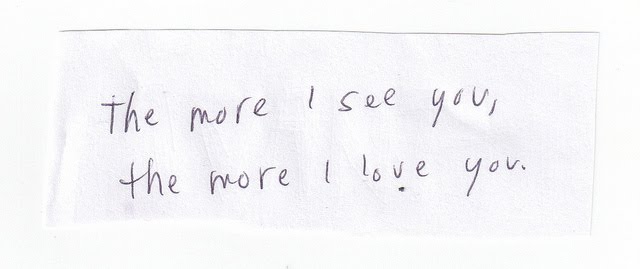 The more I see you,
the more I love you.